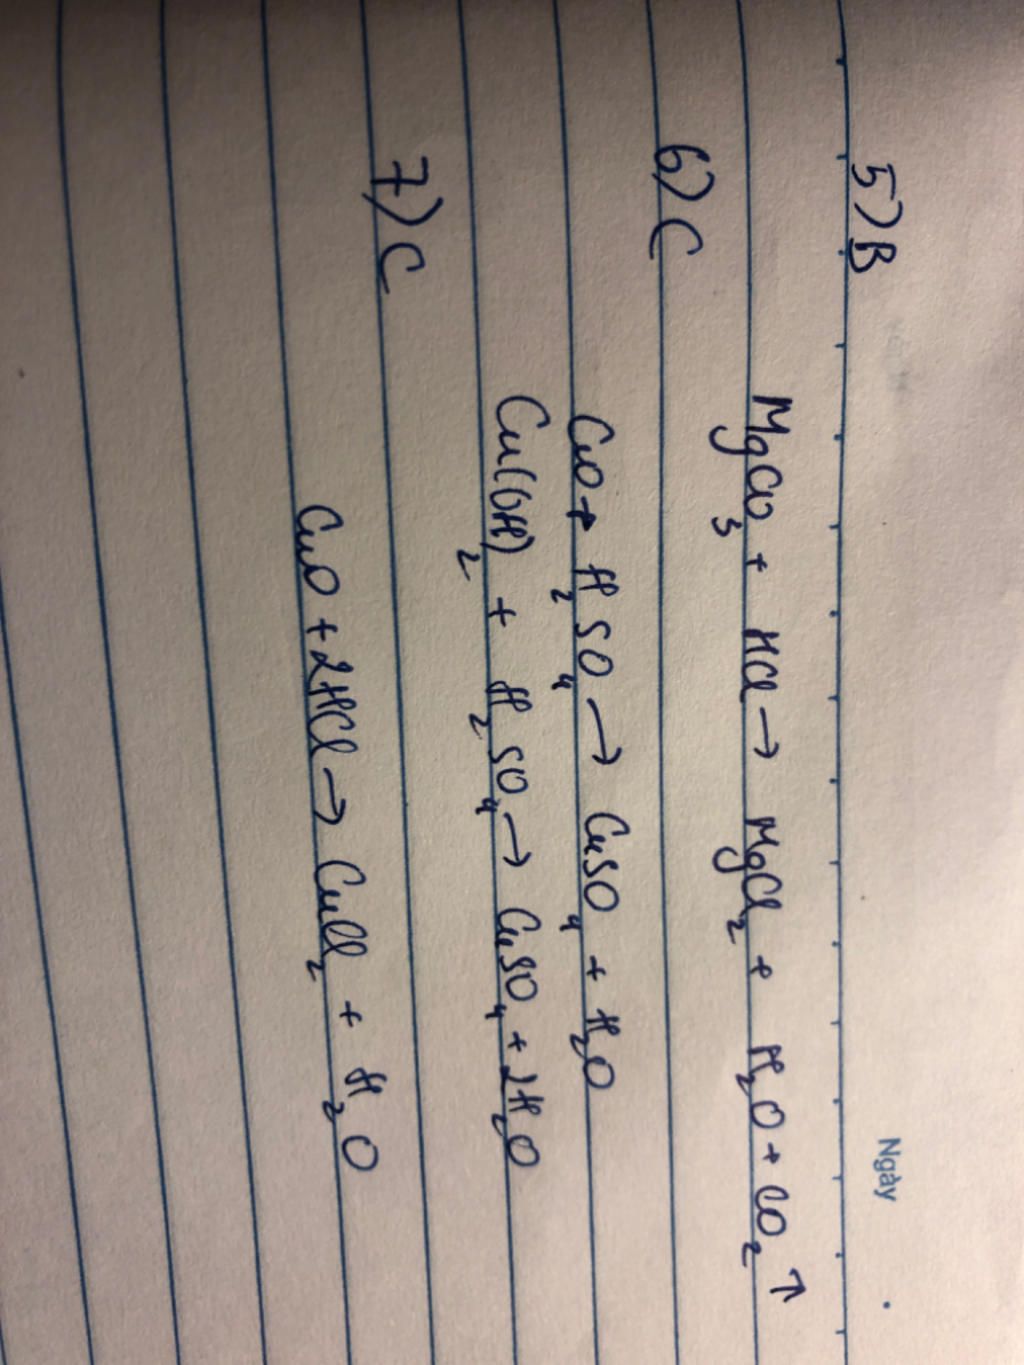 Ngày
5) B
MgCO₃ + HCl → MgCl₂ + H₂O + CO₂ ↑
6) C
CuO + H₂SO₄ → CuSO₄ + H₂O
Cu(OH)₂ + H₂SO₄ → CuSO₄ + 2H₂O
7) C
CuO + 2HCl → CuCl₂ + H₂O